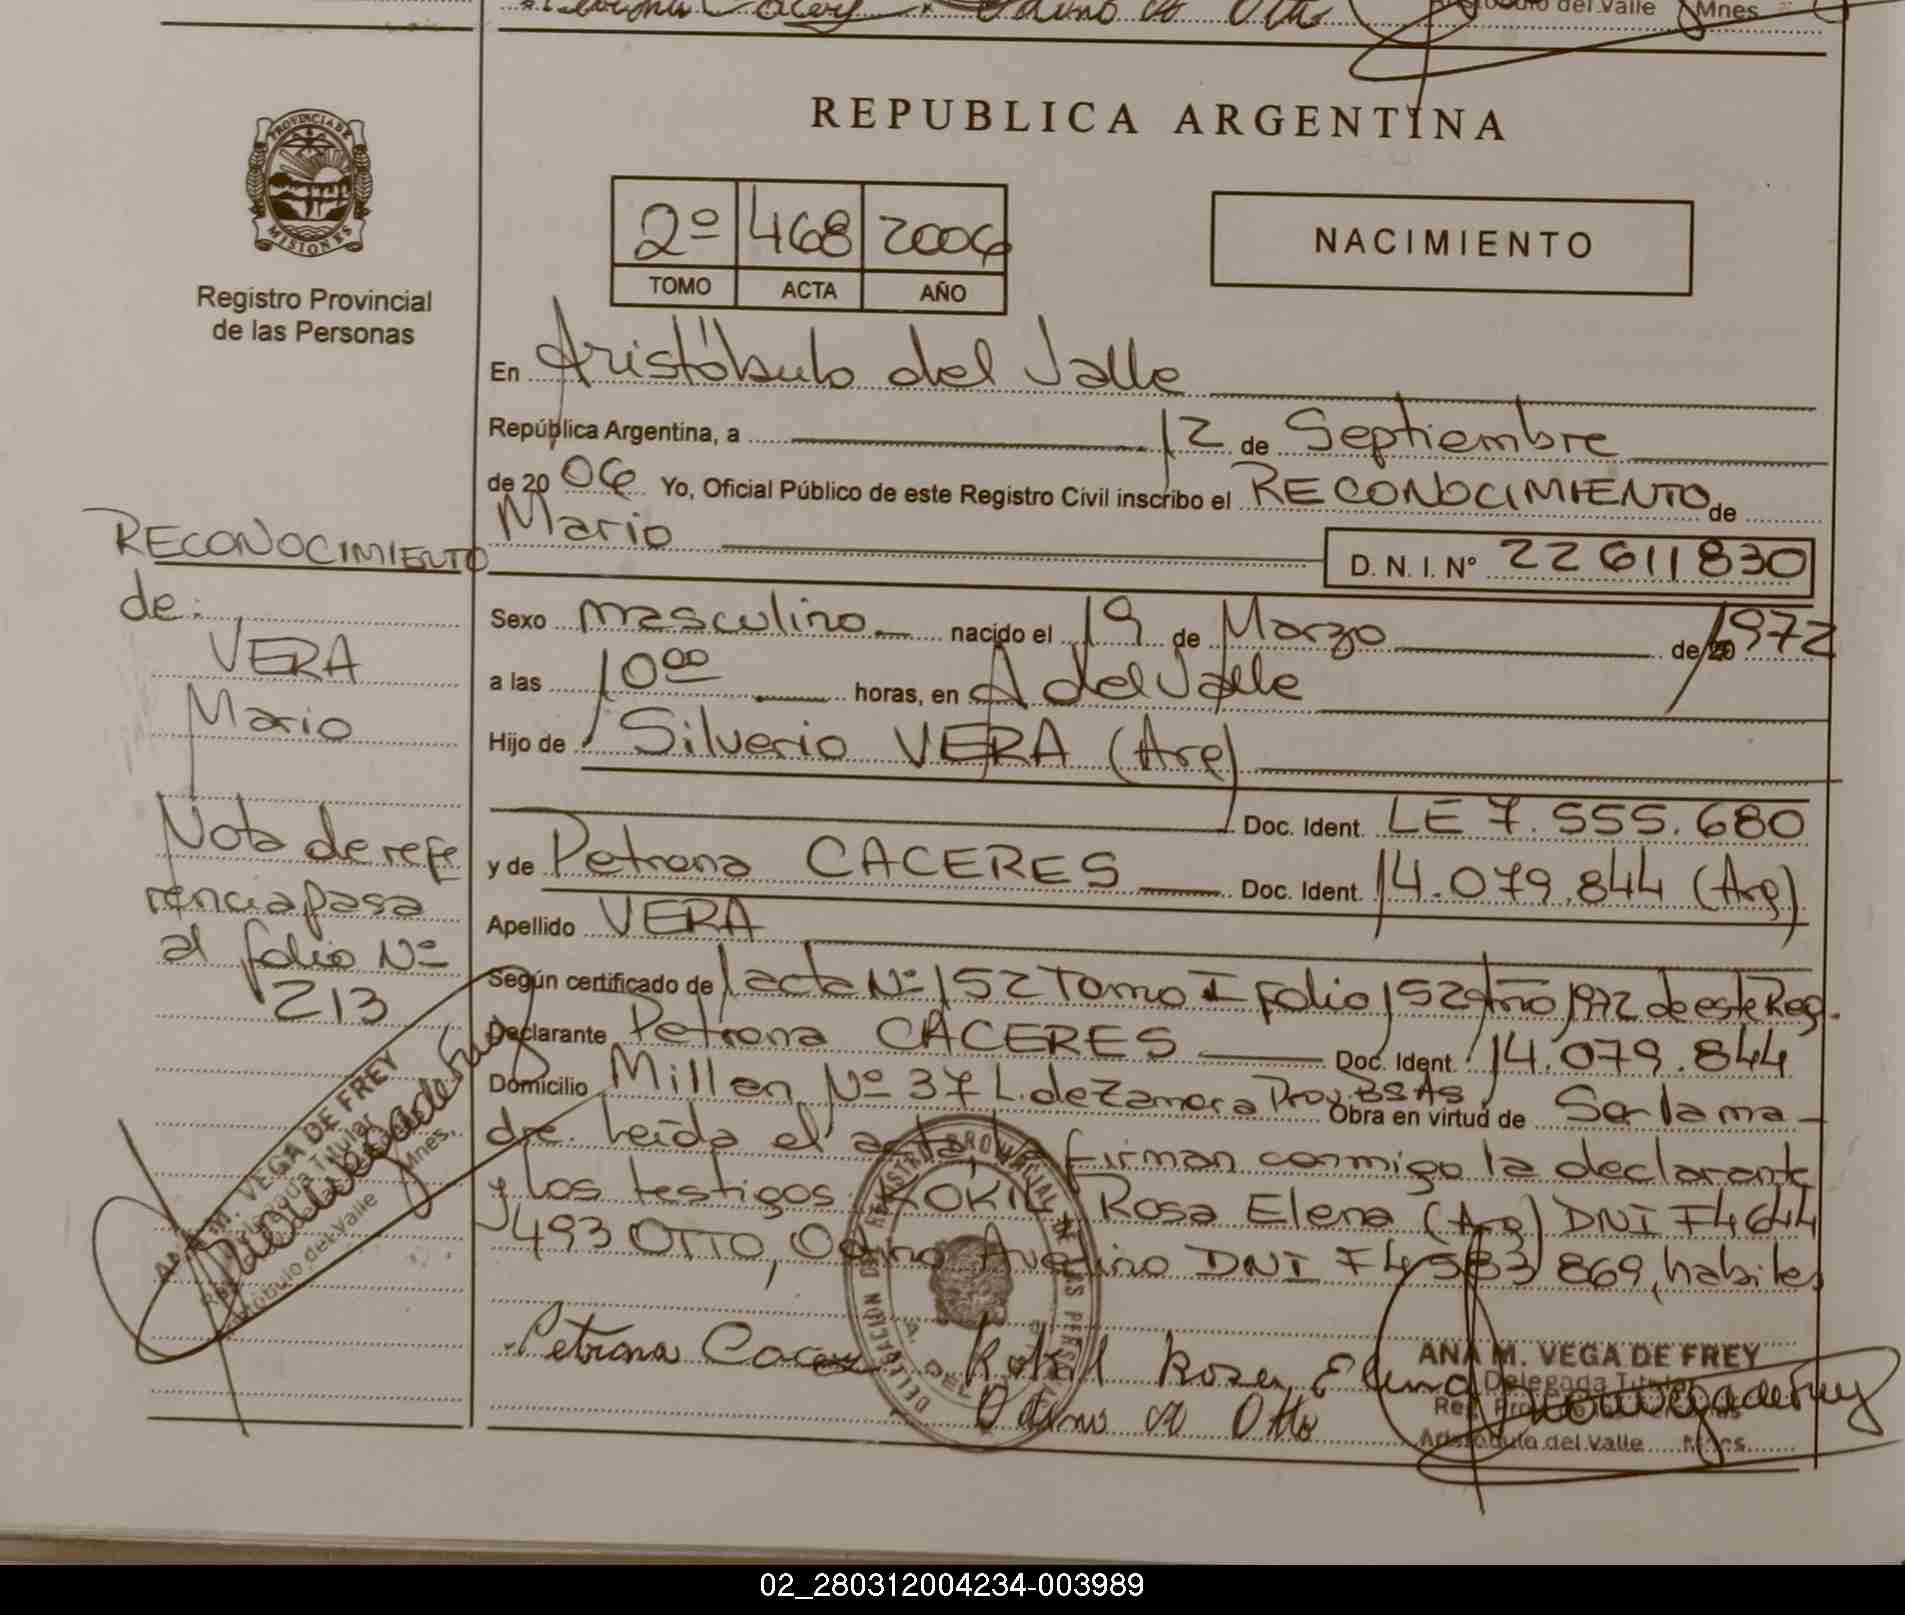 del Valle Mnes
PROVINCIA DE
MISIONES
Registro Provincial
de las Personas
REPUBLICA ARGENTINA
2º 468 2006
TOMO ACTA AÑO
NACIMIENTO
En Aristóbulo del Valle
República Argentina, a 12 de Septiembre
de 20 06 Yo, Oficial Público de este Registro Civil inscribo el RECONOCIMIENTO de
Mario
D. N. I. Nº 22 611 830
Sexo masculino nacido el 19 de Marzo de 1972
a las 10 00 horas, en A del Valle
Hijo de Silverio VERA (Arg)
Doc. Ident. LE 7.555.680
y de Petrona CACERES Doc. Ident. 14.079.844 (Arg)
Apellido VERA
Según certificado de acta Nº 152 Tomo I folio 152 Año 1972 de este Reg.
Declarante Petrona CACERES Doc. Ident. 14.079.844
Domicilio Millen Nº 37 L. de Zamora Prov. BsAs Obra en virtud de Ser la ma-
dre. Leída el acta, firman conmigo la declarante
y los testigos: KOKIL, Rosa Elena (Arg) DNI F4644
493 OTTO, Odino Avelino DNI 583 869, habiles
Petrona Cacerez Kokil Rosa Elena
Otto
ANA M. VEGA DE FREY
Delegada Titular
Aristóbulo del Valle Mnes.
RECONOCIMIENTO
de:
VERA
Mario
Nota de refe
rencia pasa
al folio Nº
213
ANA M. VEGA DE FREY
Delegada Titular
Aristóbulo del Valle Mnes.
02_280312004234-003989